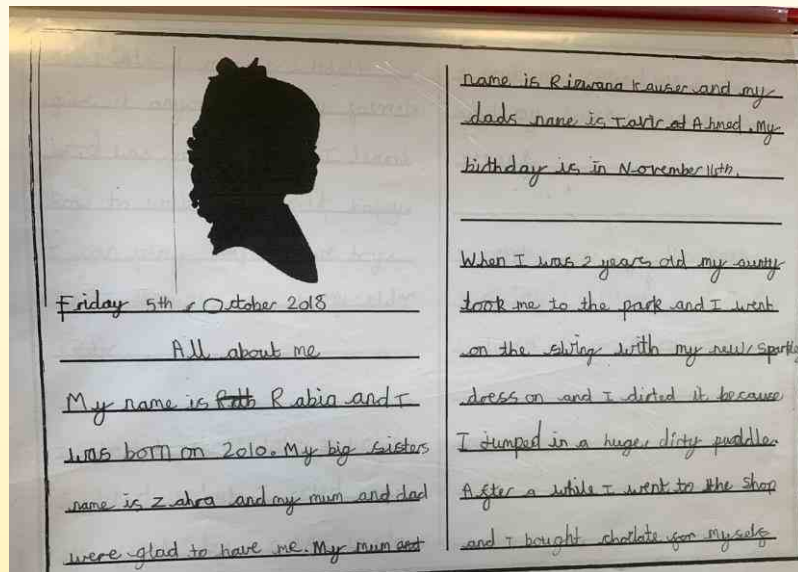 Friday 5th October 2018
All about me
My name is Rabia and I
was born on 2010. My big sisters
name is Zahra and my mum and dad
were glad to have me. My mum
name is Rizwana Kauser and my
dads name is Ahmed. My
birthday is in November 11th.
When I was 2 years old my aunty
took me to the park and I went
on the swing with my new sparkly
dress on and I dirted it because
I jumped in a huge, dirty puddle.
After a while I went to the shop
and I bought choclate for myself